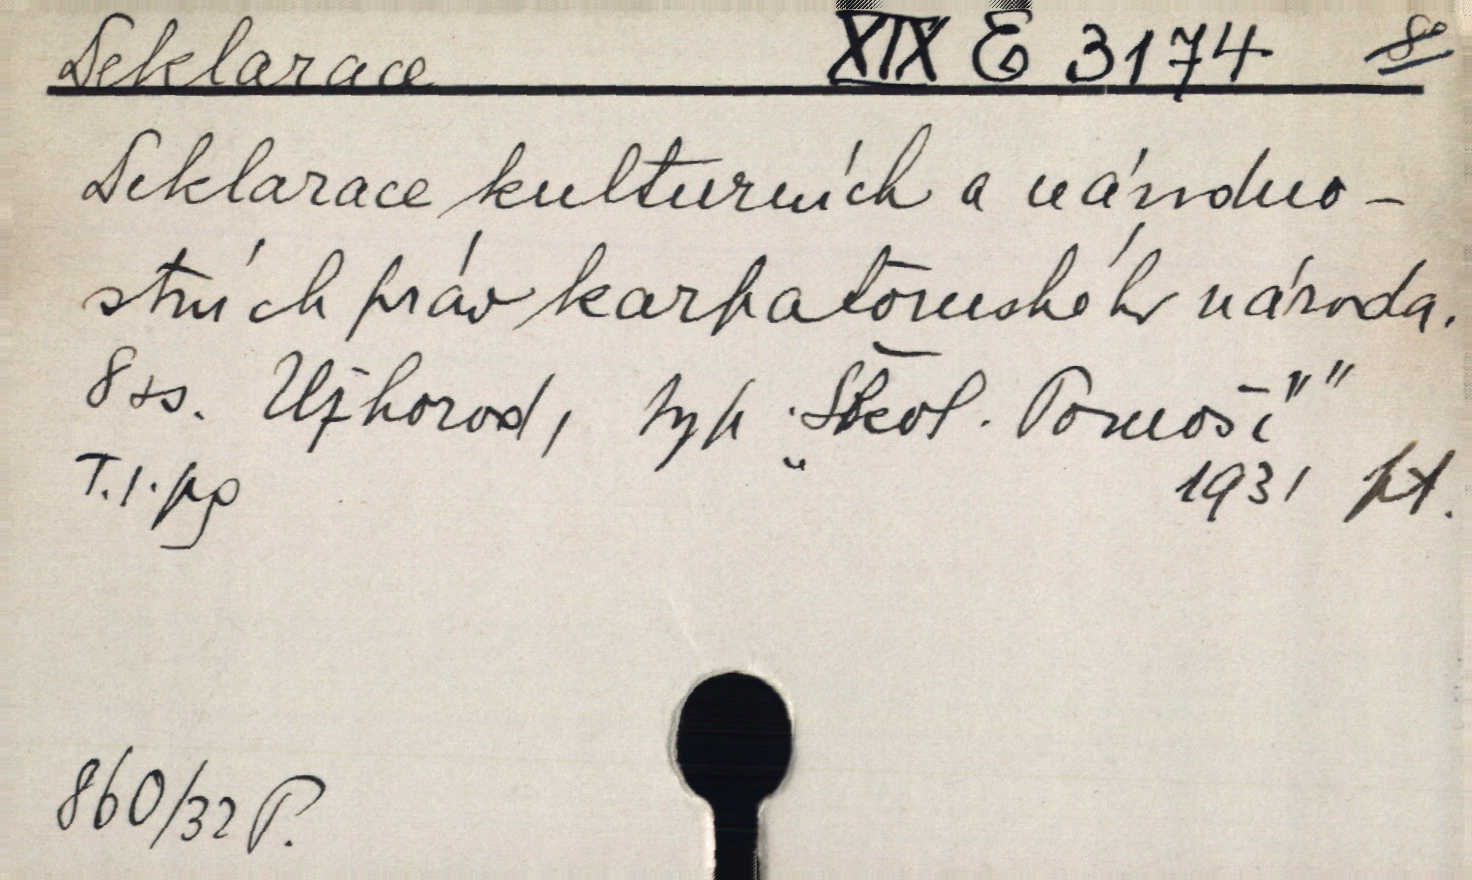 Deklarace XIX E 3174 8°
Deklarace kulturních a národno-
stních práv karpatoruského národa.
8 ss. Užhorod, typ. „Škol. Pomošč"
T.1.pg 1931 pt.
860/32 P.